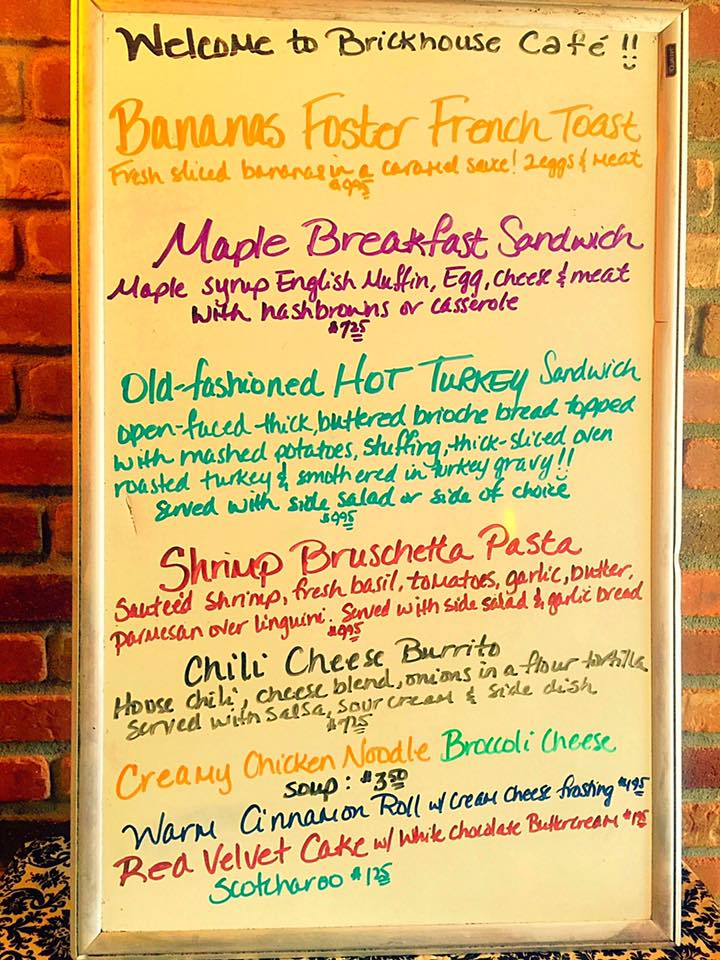 Welcome to Brickhouse Café!!
Bananas Foster French Toast
Fresh sliced bananas in a caramel sauce! 2 eggs & meat
$9.95
Maple Breakfast Sandwich
Maple syrup English Muffin, Egg, cheese & meat
with hashbrowns or casserole
$7.25
Old-fashioned HOT TURKEY Sandwich
open-faced thick, buttered brioche bread topped
with mashed potatoes, stuffing, thick-sliced oven
roasted turkey & smothered in turkey gravy!!
Served with side salad or side of choice
$9.95
Shrimp Bruschetta Pasta
Sauteéd shrimp, fresh basil, tomatoes, garlic, butter,
parmesan over linguini. Served with side salad & garlic bread
$9.95
Chili Cheese Burrito
House chili, cheese blend, onions in a flour tortilla
Served with salsa, sour cream & side dish
Creamy Chicken Noodle Broccoli Cheese
soup: $3.50
Warm Cinnamon Roll w/ Cream Cheese frosting $1.95
Red Velvet Cake w/ White Chocolate Buttercream
Scotcharoo $1.25